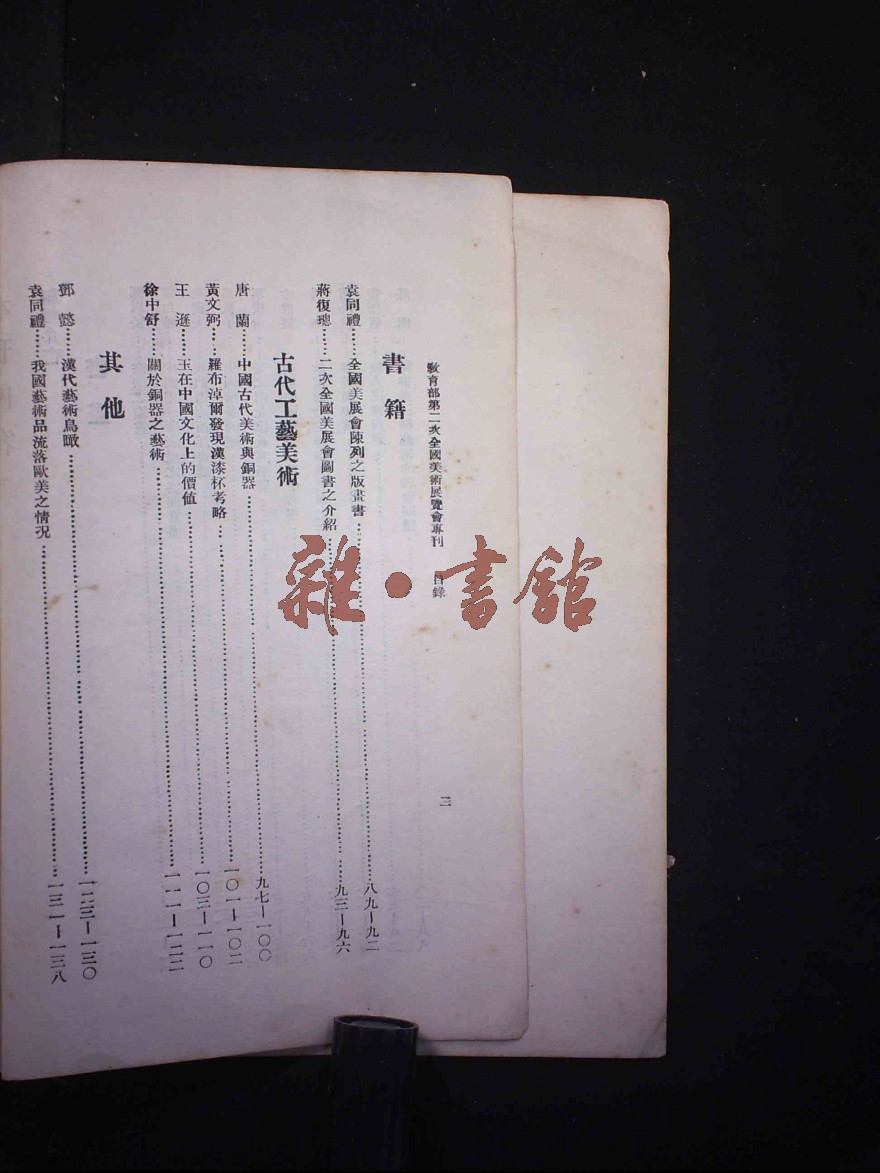 教育部第二次全國美術展覽會專刊 目錄 三
書籍
袁同禮……全國美展會陳列之版畫書……八九—九二
蔣復璁……二次全國美展會圖書之介紹……九三—九六
古代工藝美術
唐蘭……中國古代美術與銅器……九七—一〇〇
黃文弼……羅布淖爾發現漢漆杯考略……一〇一—一〇二
王遜……玉在中國文化上的價值……一〇三—一一〇
徐中舒……關於銅器之藝術……一一一—一二二
其他
鄧懿……漢代藝術鳥瞰……一二三—一三〇
袁同禮……我國藝術品流落歐美之情況……一三一—一三八
雜·書館